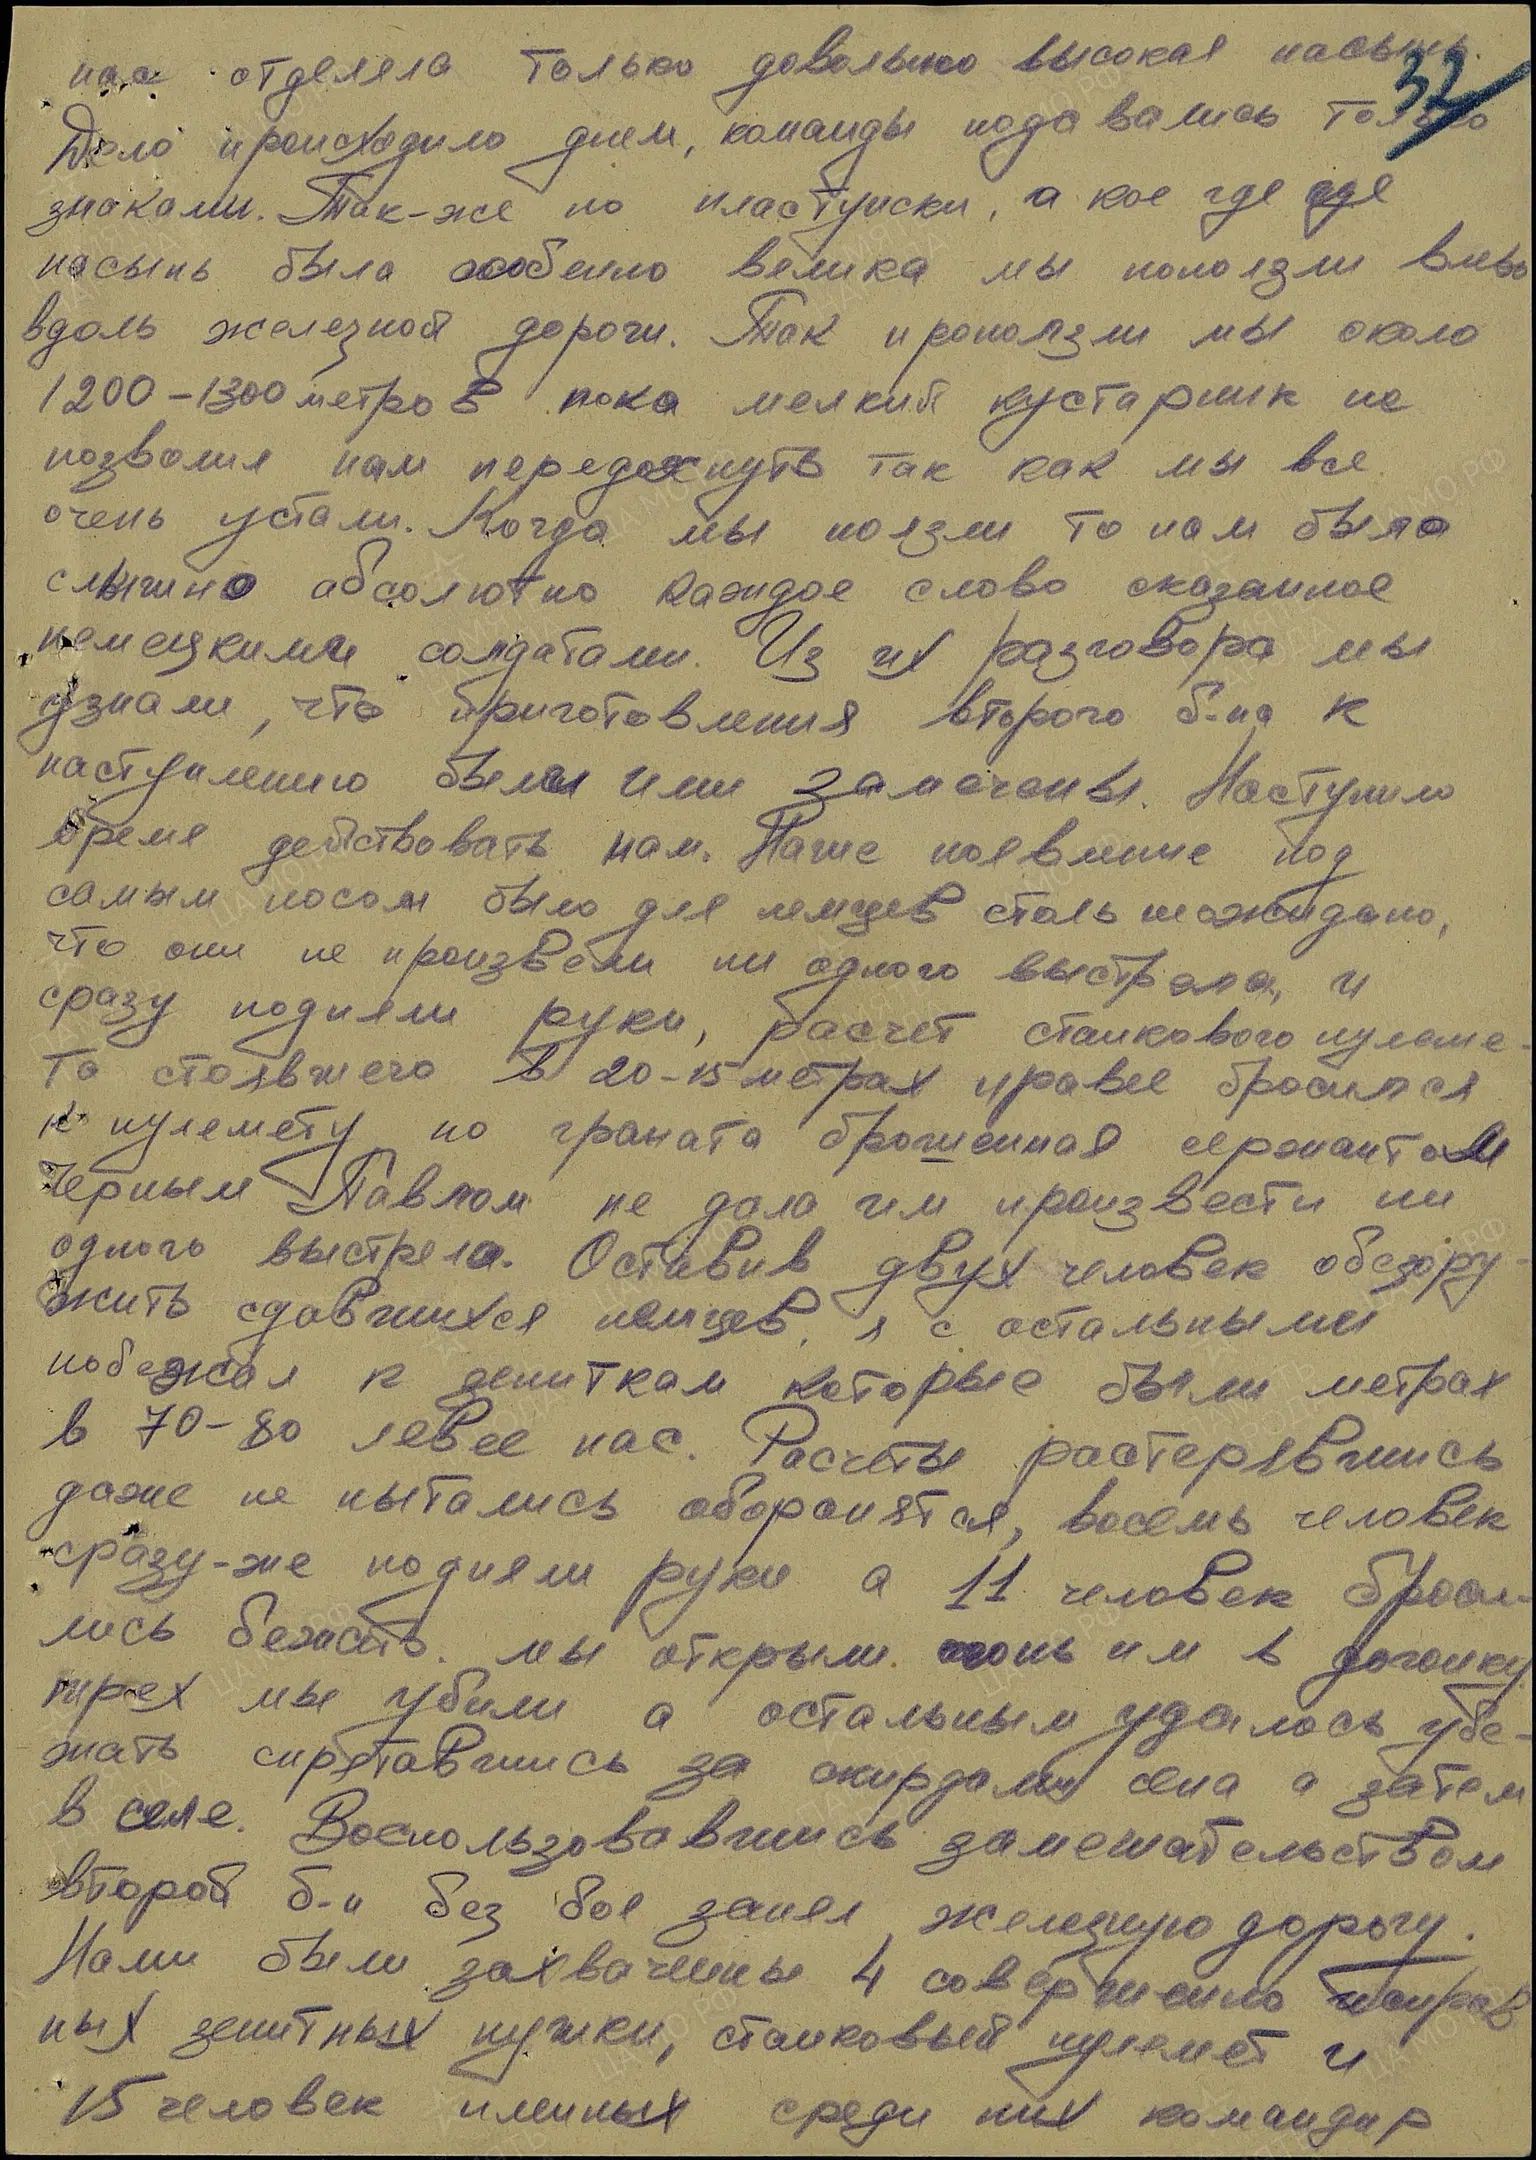 нас отделяла только довольно высокая насыпь.
32
Дело происходило днем, команды подавались только
знаками. Так-же по пластунски, а кое где где
насыпь была особенно велика мы поползли влево
вдоль железной дороги. Так проползли мы около
1200-1300 метров пока мелкий кустарник не
позволил нам передохнуть так как мы все
очень устали. Когда мы ползли то нам было
слышно абсолютно каждое слово сказанное
немецкими солдатами. Из их разговора мы
узнали, что приготовления второго б-на к
наступлению были ими замечены. Наступило
время действовать нам. Наше появление под
самым носом было для немцев столь неожидано,
что они не произвели ни одного выстрела, и
сразу подняли руки, расчет станкового пулеме-
та стоявшего в 20-15 метрах правее бросился
к пулемету но граната брошенная сержантом
Черным Павлом не дала им произвести ни
одного выстрела. Оставив двух человек обезору-
жить сдавшихся немцев, я с остальными
побежал к зениткам которые были метрах
в 70-80 левее нас. Расчеты растерявшись
даже не пытались оборонятся, восемь человек
сразу-же подняли руки а 11 человек броси-
лись бежать. мы открыли огонь им в догонку
трех мы убили а остальным удалось убе-
жать спрятавшись за скирдами сена а затем
в селе. Воспользовавшись замешательством
второй б-н без боя занял железную дорогу.
Нами были захвачены 4 совершенно исправ
ных зенитных пушки, станковый пулемет и
15 человек пленных среди них командир